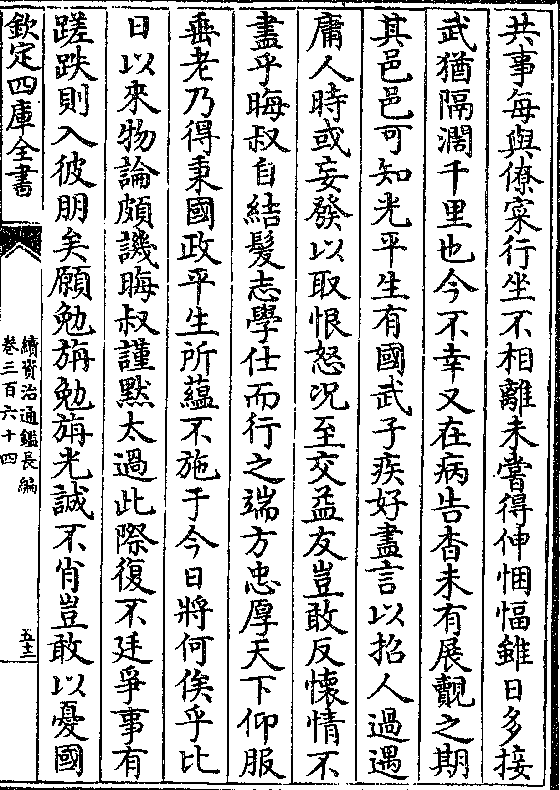 共事每與僚寀行坐不相離未嘗得伸悃愊雖日多接
武猶隔濶千里也今不幸又在病告杳未有展覿之期
其邑邑可知光平生有國武子疾好盡言以招人過遇
庸人時或妄發以取恨怒况至交孟友豈敢反懷情不
盡乎晦叔自結髮志學仕而行之端方忠厚天下仰服
垂老乃得秉國政平生所蘊不施于今日將何俟乎比
日以來物論頗譏晦叔謹默太過此際復不廷爭事有
蹉跌則入彼朋矣願勉旃勉旃光誠不肖豈敢以憂國
欽定四庫全書
續資治通鑑長編
卷三百六十四
五十三